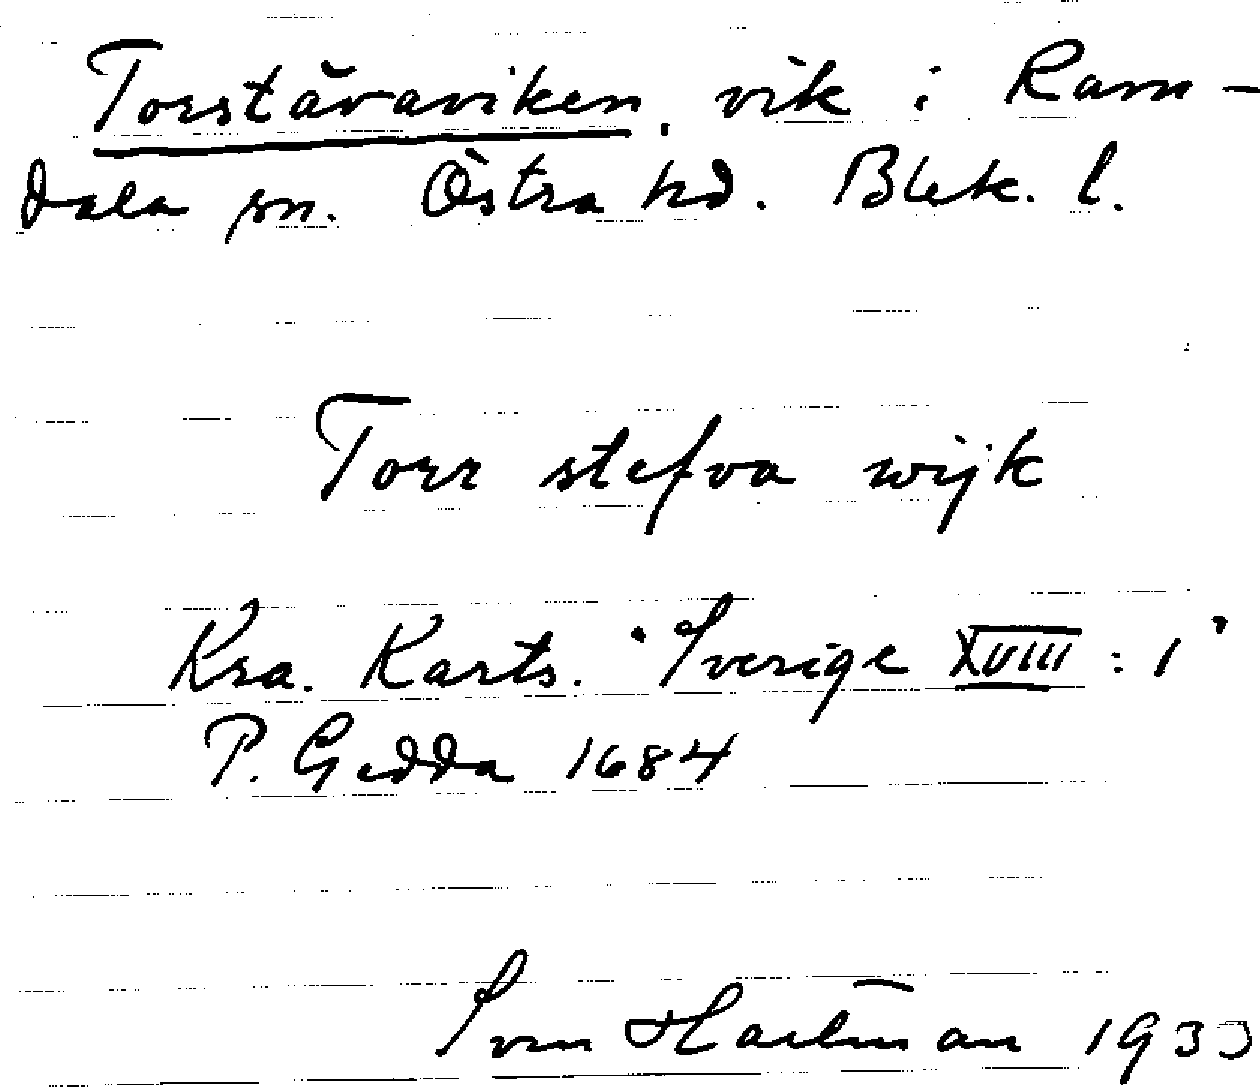 Torstävaviken, vik i Ram-
dala sn. Östra hd. Blek. l.
Torr stefva wijk
Kra. Karts. "Sverige XVIII : 1"
P. Gedda 1684
Sven Hartman 1933